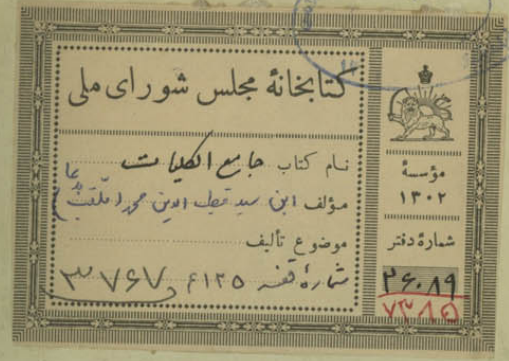 کتابخانهٔ مجلس شورای ملی
نام کتاب جامع الکلیات
مؤلف ابن سید قطب الدین محمد
موضوع تألیف
شمارهٔ قفسه ۶۱۲۵ ۳۷۶۷
مؤسسهٔ
۱۳۰۲
شمارهٔ دفتر
۲۶۰۸۹
۷۳۸۱۵